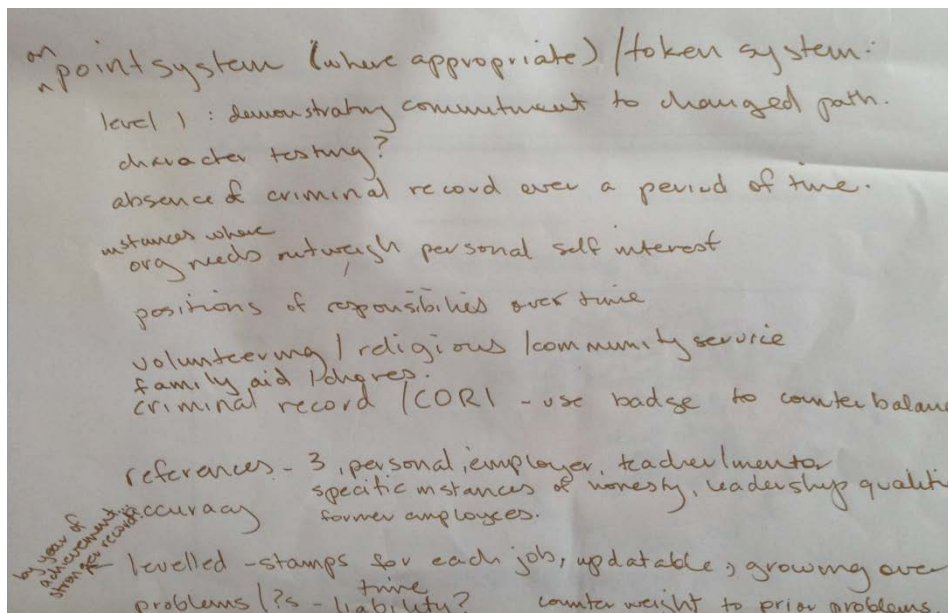 on
point system (where appropriate) / token system:
level 1 : demonstrating commitment to changed path.
character testing?
absence of criminal record over a period of time.
instances where
org needs outweigh personal self interest
positions of responsibilities over time
volunteering / religious / community service
family aid / chores.
criminal record / CORI - use badge to counterbalanc
references - 3, personal, employer, teacher/mentor
specific instances of honesty, leadership qualiti
accuracy former employees.
by year of
achievement:
stronger record
levelled - stamps for each job, updatable, growing over
time
problems / ?s - liability? counter weight to prior problems